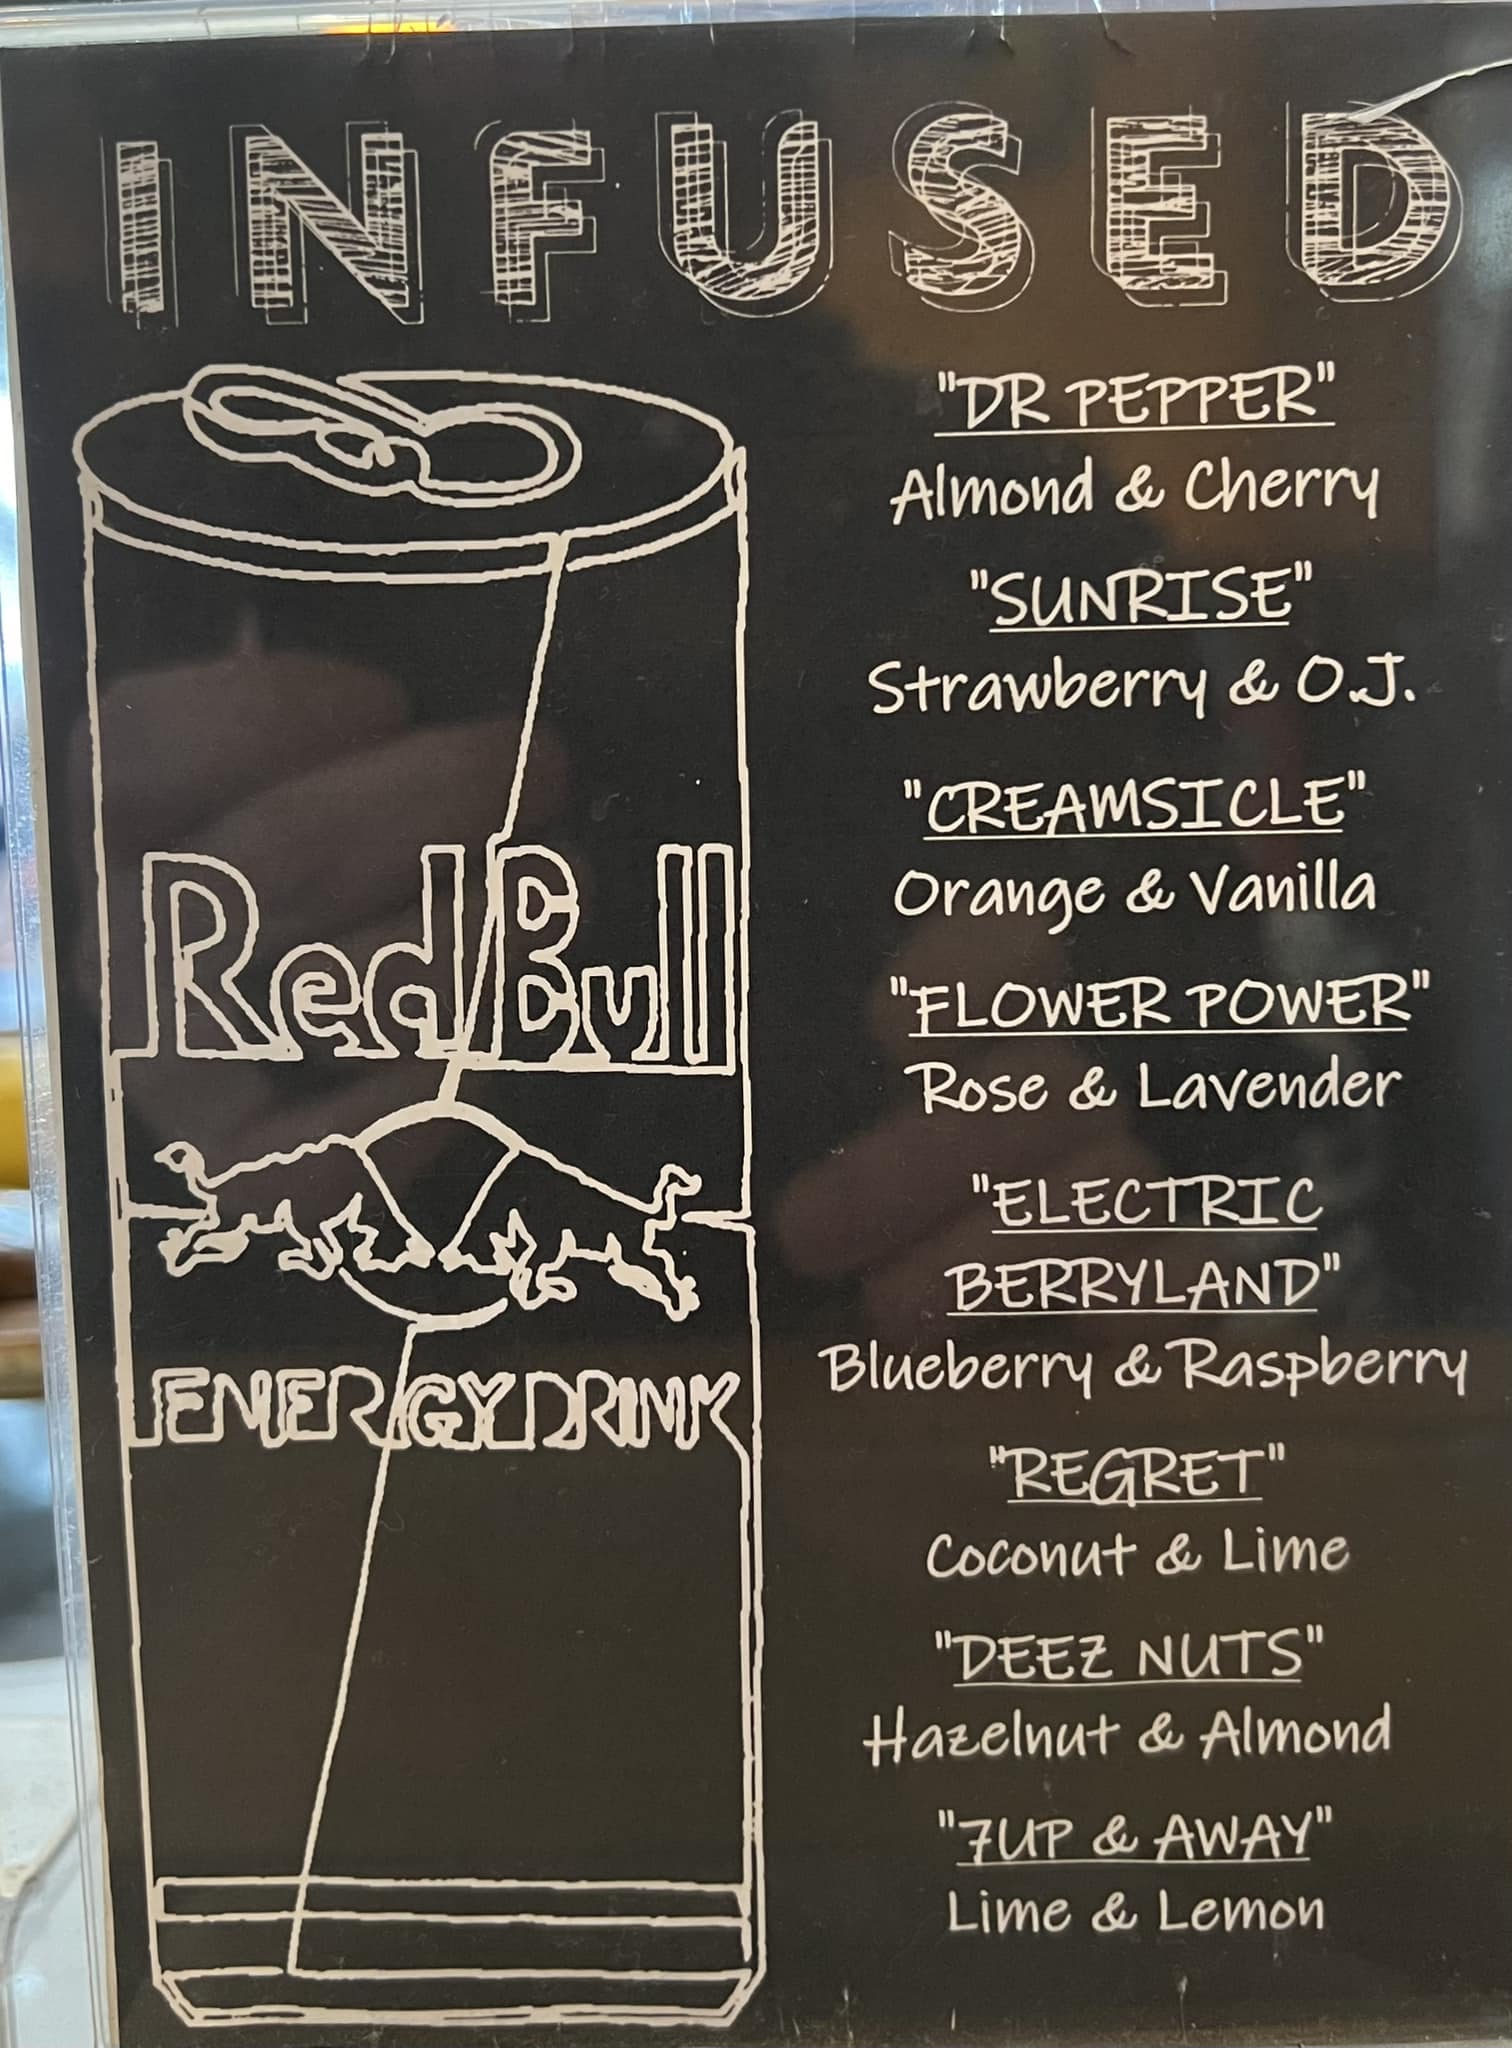 INFUSED
"DR PEPPER"
Almond & Cherry
"SUNRISE"
Strawberry & O.J.
"CREAMSICLE"
Orange & Vanilla
"FLOWER POWER"
Rose & Lavender
"ELECTRIC
BERRYLAND"
Blueberry & Raspberry
"REGRET"
Coconut & Lime
"DEEZ NUTS"
Hazelnut & Almond
"7UP & AWAY"
Lime & Lemon
Red Bull
ENERGY DRINK